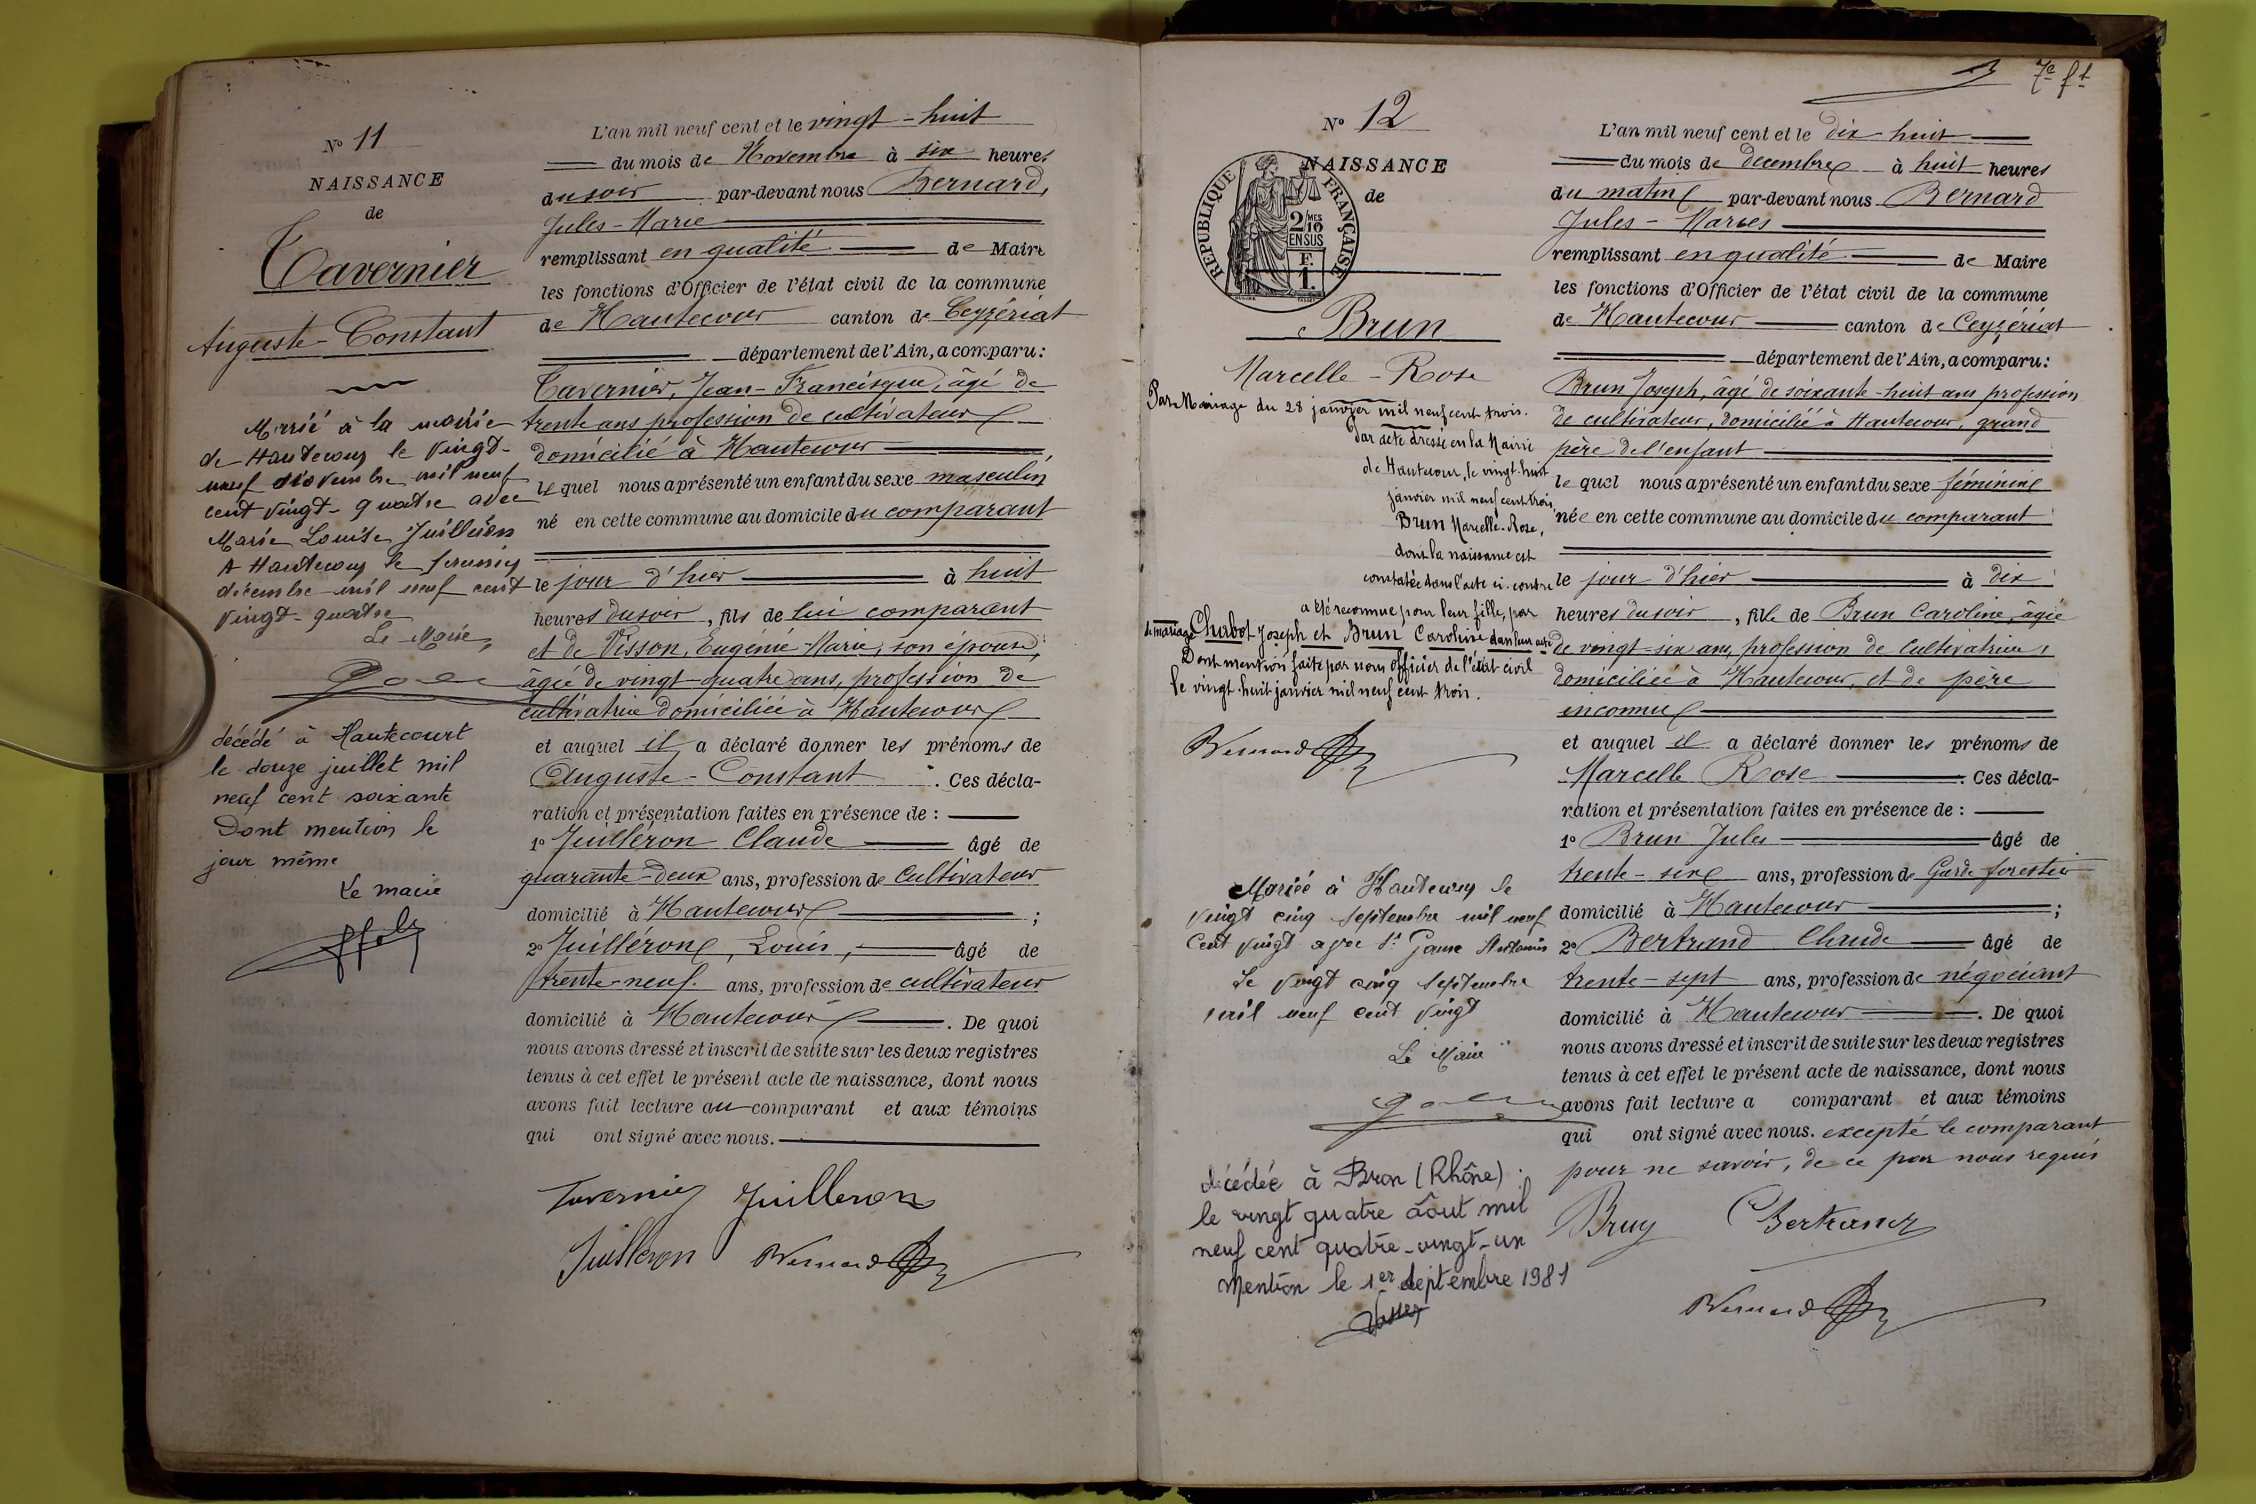 N° 11
NAISSANCE
de
Tavernier
Auguste-Constant
Marié à la mairie
de Hautecour le vingt-
neuf novembre mil neuf
cent vingt-quatre avec
Marie Louise Juilléron
A Hautecour le premier
décembre mil neuf cent
vingt-quatre
Le Maire,
décédé à Hautecourt
le douze juillet mil
neuf cent soixante
Dont mention le
jour même
Le maire
L'an mil neuf cent et le vingt-huit
du mois de Novembre à six heures
du soir par-devant nous Bernard,
Jules-Marie
remplissant en qualité de Maire
les fonctions d'Officier de l'état civil de la commune
de Hautecour canton de Ceyzériat
département de l'Ain, a comparu:
Tavernier, Jean-Francisque, âgé de
trente ans profession de cultivateur
domicilié à Hautecour
lequel nous a présenté un enfant du sexe masculin
né en cette commune au domicile du comparant
le jour d'hier à huit
heures du soir, fils de lui comparant
et de Visson, Eugénie-Marie, son épouse,
âgée de vingt-quatre ans, profession de
cultivatrice domiciliée à Hautecour
et auquel il a déclaré donner les prénoms de
Auguste-Constant. Ces décla-
ration et présentation faites en présence de :
1° Juilléron Claude âgé de
quarante-deux ans, profession de Cultivateur
domicilié à Hautecour ;
2° Juilléron, Louis, âgé de
trente-neuf ans, profession de cultivateur
domicilié à Hautecour. De quoi
nous avons dressé et inscrit de suite sur les deux registres
tenus à cet effet le présent acte de naissance, dont nous
avons fait lecture au comparant et aux témoins
qui ont signé avec nous.
Tavernier Juilleron
Juilleron Bernard
7e ft
N° 12
NAISSANCE
de
REPUBLIQUE FRANÇAISE
2/10 MES
EN SUS
F.
1.
Brun
Marcelle-Rose
Par Mariage du 28 janvier mil neuf cent trois.
Par acte dressé en la Mairie
de Hautecour, le vingt-huit
janvier mil neuf cent trois
Brun Marcelle-Rose,
dont la naissance est
constatée dans l'acte ci-contre
a été reconnue pour leur fille, par
Joseph et Brun Caroline dans leur acte
de mariage
Dont mention faite par nous officier de l'état civil
le vingt-huit janvier mil neuf cent trois.
Bernard
Mariée à Hautecour le
vingt cinq septembre mil neuf
cent vingt avec
Le vingt cinq septembre
mil neuf cent vingt
Le Maire
décédée à Bron (Rhône)
le vingt quatre août mil
neuf cent quatre-vingt-un
Mention le 1er septembre 1981
L'an mil neuf cent et le dix-huit
du mois de décembre à huit heures
du matin par-devant nous Bernard
Jules-Marie
remplissant en qualité de Maire
les fonctions d'Officier de l'état civil de la commune
de Hautecour canton de Ceyzériat
département de l'Ain, a comparu:
Brun Joseph, âgé de soixante-huit ans profession
de cultivateur, domicilié à Hautecour, grand
père de l'enfant
lequel nous a présenté un enfant du sexe féminine
née en cette commune au domicile du comparant
le jour d'hier à dix
heures du soir, fille de Brun Caroline, âgée
de vingt-six ans, profession de Cultivatrice,
domiciliée à Hautecour, et de père
inconnu
et auquel il a déclaré donner les prénoms de
Marcelle Rose. Ces décla-
ration et présentation faites en présence de :
1° Brun Jules âgé de
trente-six ans, profession de Garde forestier
domicilié à Hautecour ;
2° Bertrand Claude âgé de
trente-sept ans, profession de négociant
domicilié à Hautecour. De quoi
nous avons dressé et inscrit de suite sur les deux registres
tenus à cet effet le présent acte de naissance, dont nous
avons fait lecture a comparant et aux témoins
qui ont signé avec nous. excepté le comparant
pour ne savoir, de ce par nous requis
Brun Bertrand
Bernard